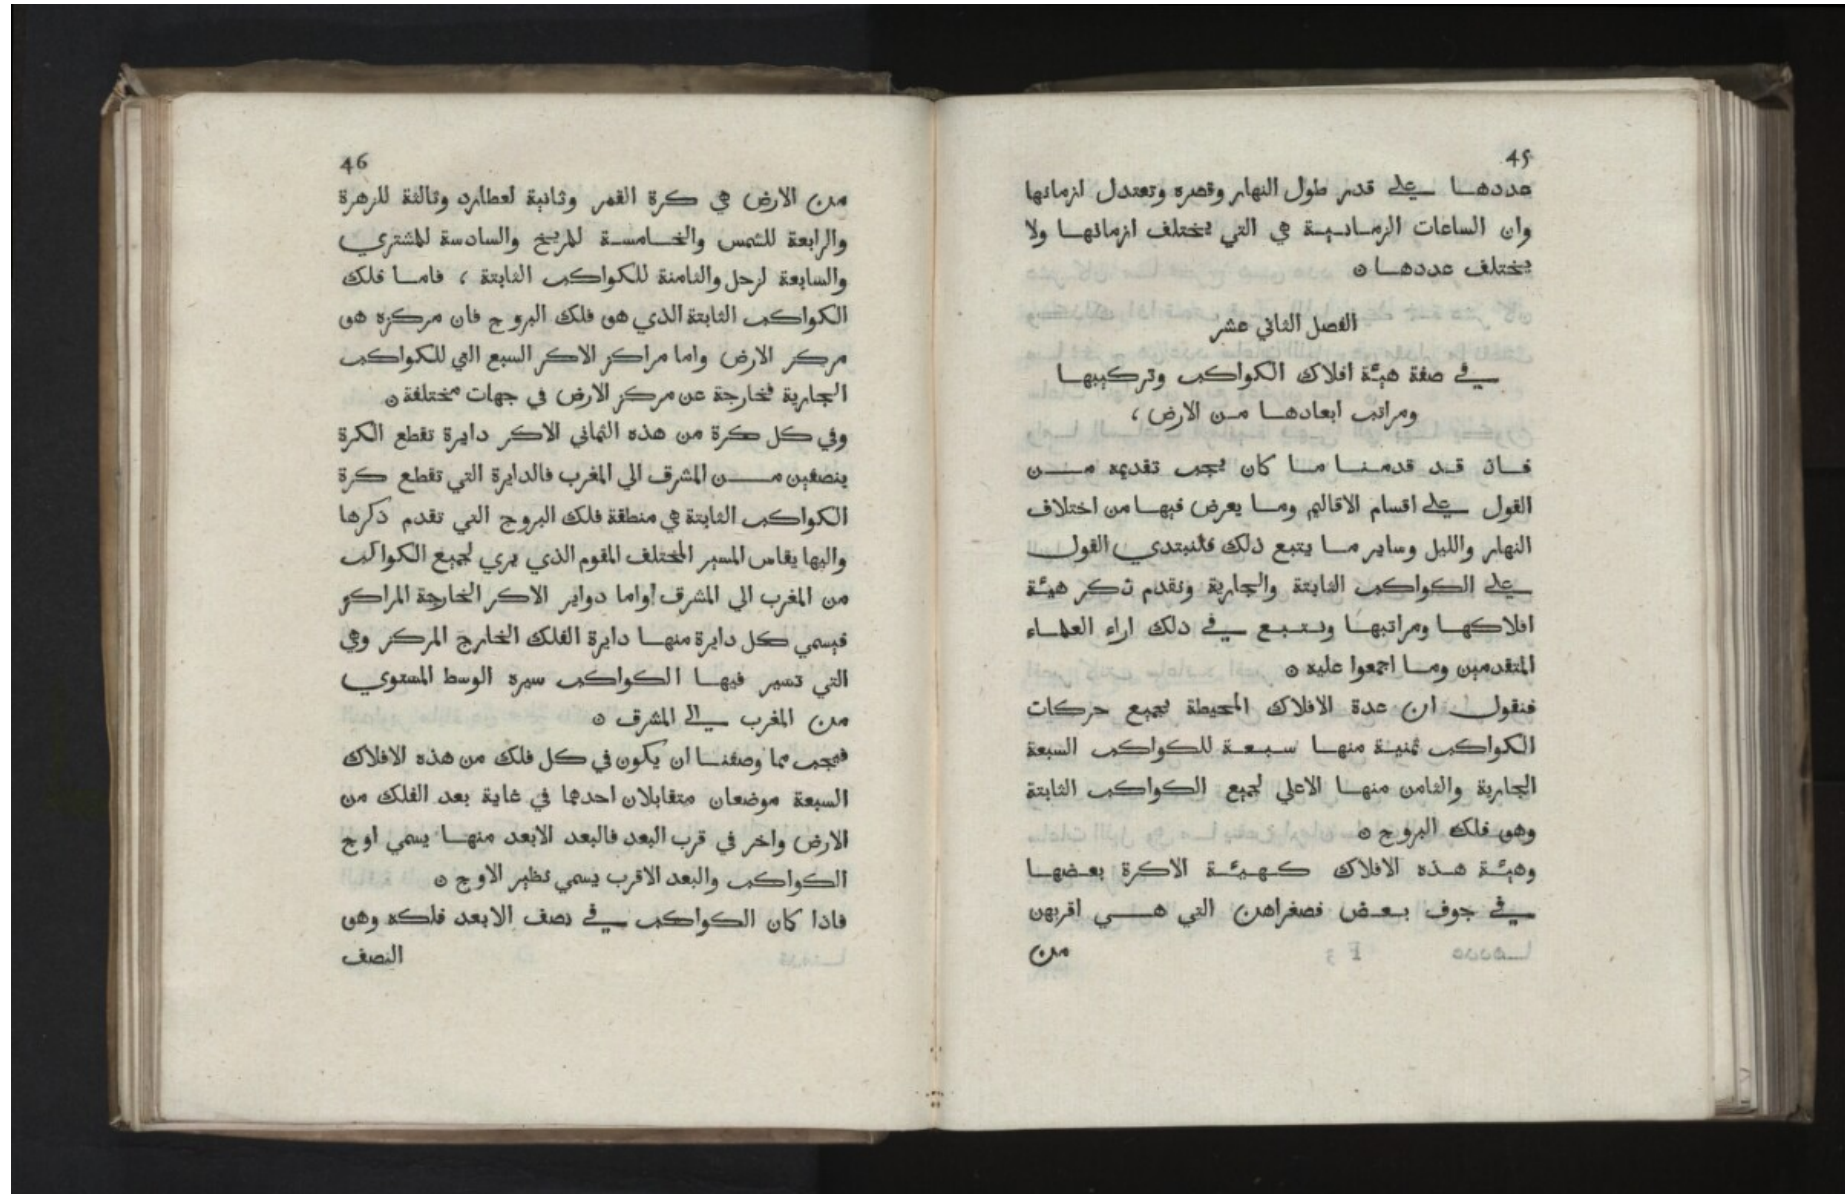 45
عددهـا على قدر طول النهار وقصره وتعتدل ازمانها
وان الساعات الزمانية هي التي يختلف ازمانها ولا
يختلف عددها ๏
الفصل الثاني عشر
في صفة هيئة افلاك الكواكب وتركيبها
ومراتب ابعادها من الارض ،
فان قد قدمنا ما كان يجب تقديمه من
القول على اقسام الاقاليم وما يعرض فيها من اختلاف
النهار والليل وساير ما يتبع ذلك فلنبتدي القول
على الكواكب الثابتة والجارية ونقدم ذكر هيئة
افلاكها ومراتبها ونتبع في ذلك اراء العلماء
المتقدمين وما اجمعوا عليه ๏
فنقول ان عدة الافلاك المحيطة بجميع حركات
الكواكب ثمنية منها سبعة للكواكب السبعة
الجارية والثامن منها الاعلي لجميع الكواكب الثابتة
وهو فلك البروج ๏
وهيئة هذه الافلاك كهيئة الاكرة بعضها
في جوف بعض فصغراهن التي هي اقربهن
من
46
من الارض هي كرة القمر وثانية لعطارد وثالثة للزهرة
والرابعة للشمس والخامسة للمريخ والسادسة للمشتري
والسابعة لزحل والثامنة للكواكب الثابتة ، فاما فلك
الكواكب الثابتة الذي هو فلك البروج فان مركزه هو
مركز الارض واما مراكز الاكر السبع التي للكواكب
الجارية فخارجة عن مركز الارض في جهات مختلفة ๏
وفي كل كرة من هذه الثماني الاكر دايرة تقطع الكرة
بنصفين من المشرق الي المغرب فالدايرة التي تقطع كرة
الكواكب الثابتة هي منطقة فلك البروج التي تقدم ذكرها
واليها يقاس المسير المختلف المقوم الذي يري لجميع الكواكب
من المغرب الي المشرق واما دواير الاكر الخارجة المراكز
فيسمي كل دايرة منها دايرة الفلك الخارج المركز وهي
التي تسير فيها الكواكب سيره الوسط المستوي
من المغرب الى المشرق ๏
فيجب مما وصفنا ان يكون في كل فلك من هذه الافلاك
السبعة موضعان متقابلان احدهما في غاية بعد الفلك من
الارض واخر في قرب البعد فالبعد الابعد منها يسمي اوج
الكواكب والبعد الاقرب يسمي نظير الاوج ๏
فاذا كان الكواكب في نصف الابعد فلكه وهو
النصف